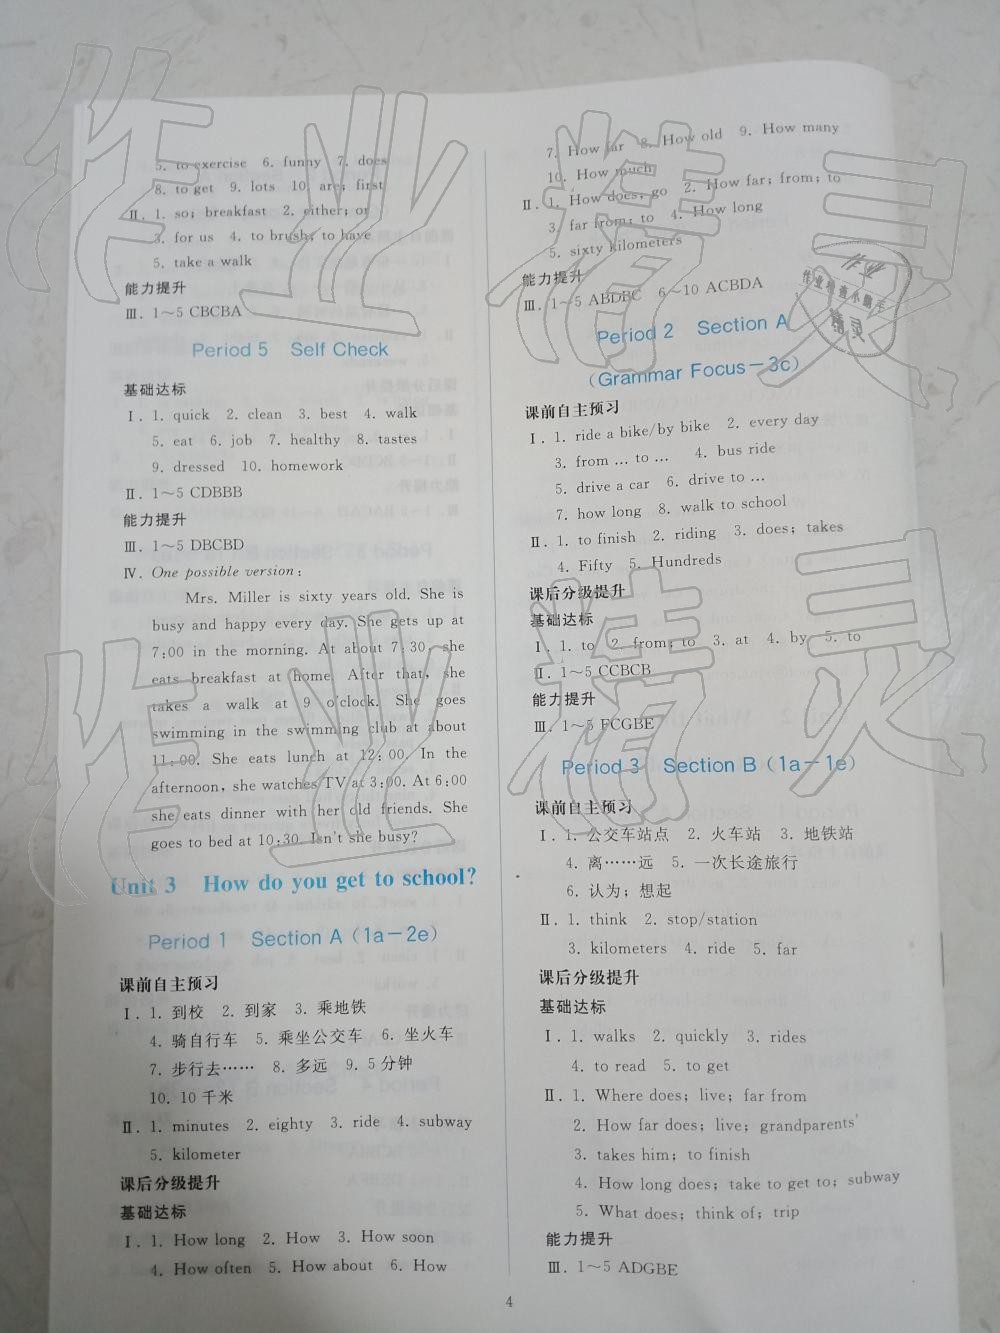 5. to exercise 6. funny 7. does
8. to get 9. lots 10. are; first
Ⅱ. 1. so; breakfast 2. either; or
3. for us 4. to brush; to have
5. take a walk
能力提升
Ⅲ. 1～5 CBCBA
Period 5 Self Check
基础达标
Ⅰ. 1. quick 2. clean 3. best 4. walk
5. eat 6. job 7. healthy 8. tastes
9. dressed 10. homework
Ⅱ. 1～5 CDBBB
能力提升
Ⅲ. 1～5 DBCBD
Ⅳ. One possible version:
Mrs. Miller is sixty years old. She is
busy and happy every day. She gets up at
7:00 in the morning. At about 7:30, she
eats breakfast at home. After that, she
takes a walk at 9 o'clock. She goes
swimming in the swimming club at about
11:00. She eats lunch at 12:00. In the
afternoon, she watches TV at 3:00. At 6:00
she eats dinner with her old friends. She
goes to bed at 10:30. Isn't she busy?
Unit 3 How do you get to school?
Period 1 Section A (1a-2e)
课前自主预习
Ⅰ. 1. 到校 2. 到家 3. 乘地铁
4. 骑自行车 5. 乘坐公交车 6. 坐火车
7. 步行去…… 8. 多远 9. 5分钟
10. 10千米
Ⅱ. 1. minutes 2. eighty 3. ride 4. subway
5. kilometer
课后分级提升
基础达标
Ⅰ. 1. How long 2. How 3. How soon
4. How often 5. How about 6. How
7. How far 8. How old 9. How many
10. How much
Ⅱ. 1. How does; go 2. How far; from; to
3. far from; to 4. How long
5. sixty kilometers
能力提升
Ⅲ. 1～5 ABDBC 6～10 ACBDA
Period 2 Section A
(Grammar Focus-3c)
课前自主预习
Ⅰ. 1. ride a bike/by bike 2. every day
3. from ... to ... 4. bus ride
5. drive a car 6. drive to ...
7. how long 8. walk to school
Ⅱ. 1. to finish 2. riding 3. does; takes
4. Fifty 5. Hundreds
课后分级提升
基础达标
Ⅰ. 1. to 2. from; to 3. at 4. by 5. to
Ⅱ. 1～5 CCBCB
能力提升
Ⅲ. 1～5 FCGBE
Period 3 Section B (1a-1e)
课前自主预习
Ⅰ. 1. 公交车站点 2. 火车站 3. 地铁站
4. 离……远 5. 一次长途旅行
6. 认为；想起
Ⅱ. 1. think 2. stop/station
3. kilometers 4. ride 5. far
课后分级提升
基础达标
Ⅰ. 1. walks 2. quickly 3. rides
4. to read 5. to get
Ⅱ. 1. Where does; live; far from
2. How far does; live; grandparents'
3. takes him; to finish
4. How long does; take to get to; subway
5. What does; think of; trip
能力提升
Ⅲ. 1～5 ADGBE
4
作业精灵
作业精灵